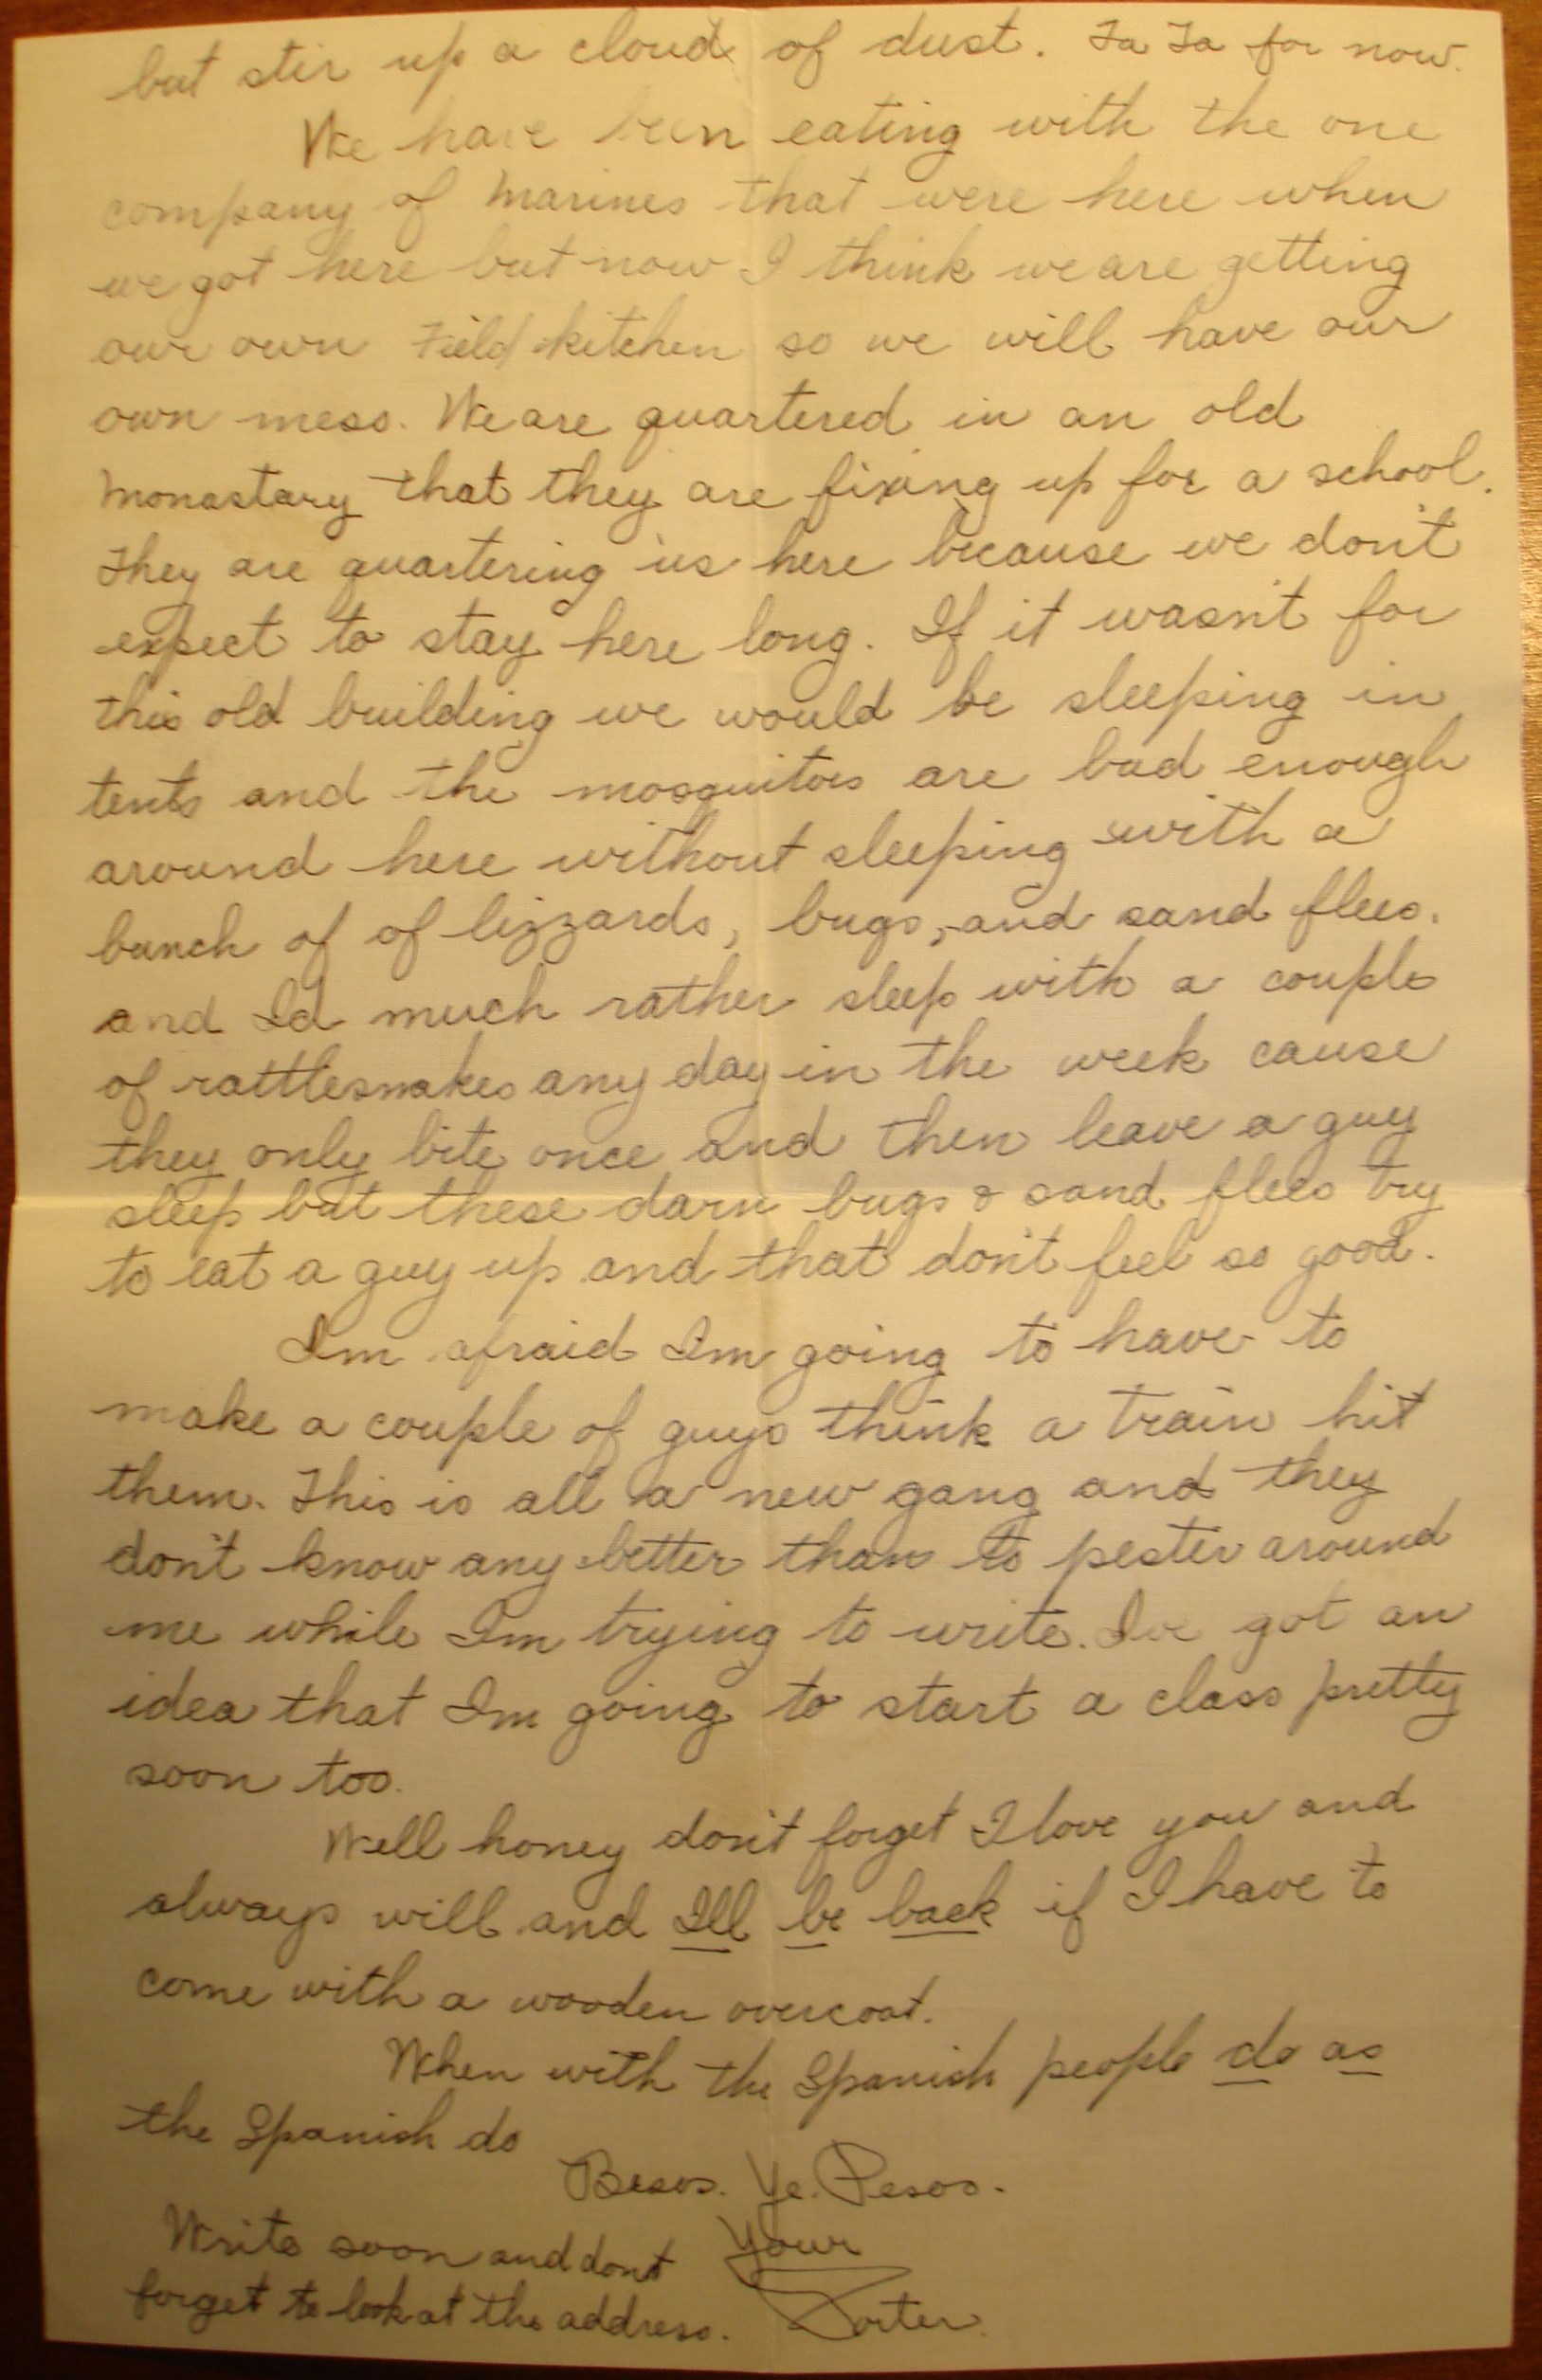 but stir up a cloud of dust. Ta Ta for now.
We have been eating with the one
company of Marines that were here when
we got here but now I think we are getting
our own Field kitchen so we will have our
own mess. We are quartered in an old
Monastary that they are fixing up for a school.
They are quartering us here because we don't
expect to stay here long. If it wasn't for
this old building we would be sleeping in
tents and the mosquitoes are bad enough
around here without sleeping with a
bunch of of lizzards, bugs, and sand flees.
and Id much rather sleep with a couple
of rattlesnakes any day in the week cause
they only bite once and then leave a guy
sleep but these darn bugs & sand flees try
to eat a guy up and that don't feel so good.
Im afraid Im going to have to
make a couple of guys think a train hit
them. This is all a new gang and they
don't know any better than to pester around
me while Im trying to write. Ive got an
idea that Im going to start a class pretty
soon too.
Well honey don't forget I love you and
always will and Ill be back if I have to
come with a wooden overcoat.
When with the Spanish people do as
the Spanish do
Besos. Ye. Pesos.
Write soon and dont
forget to look at the address.
Your
Porter.